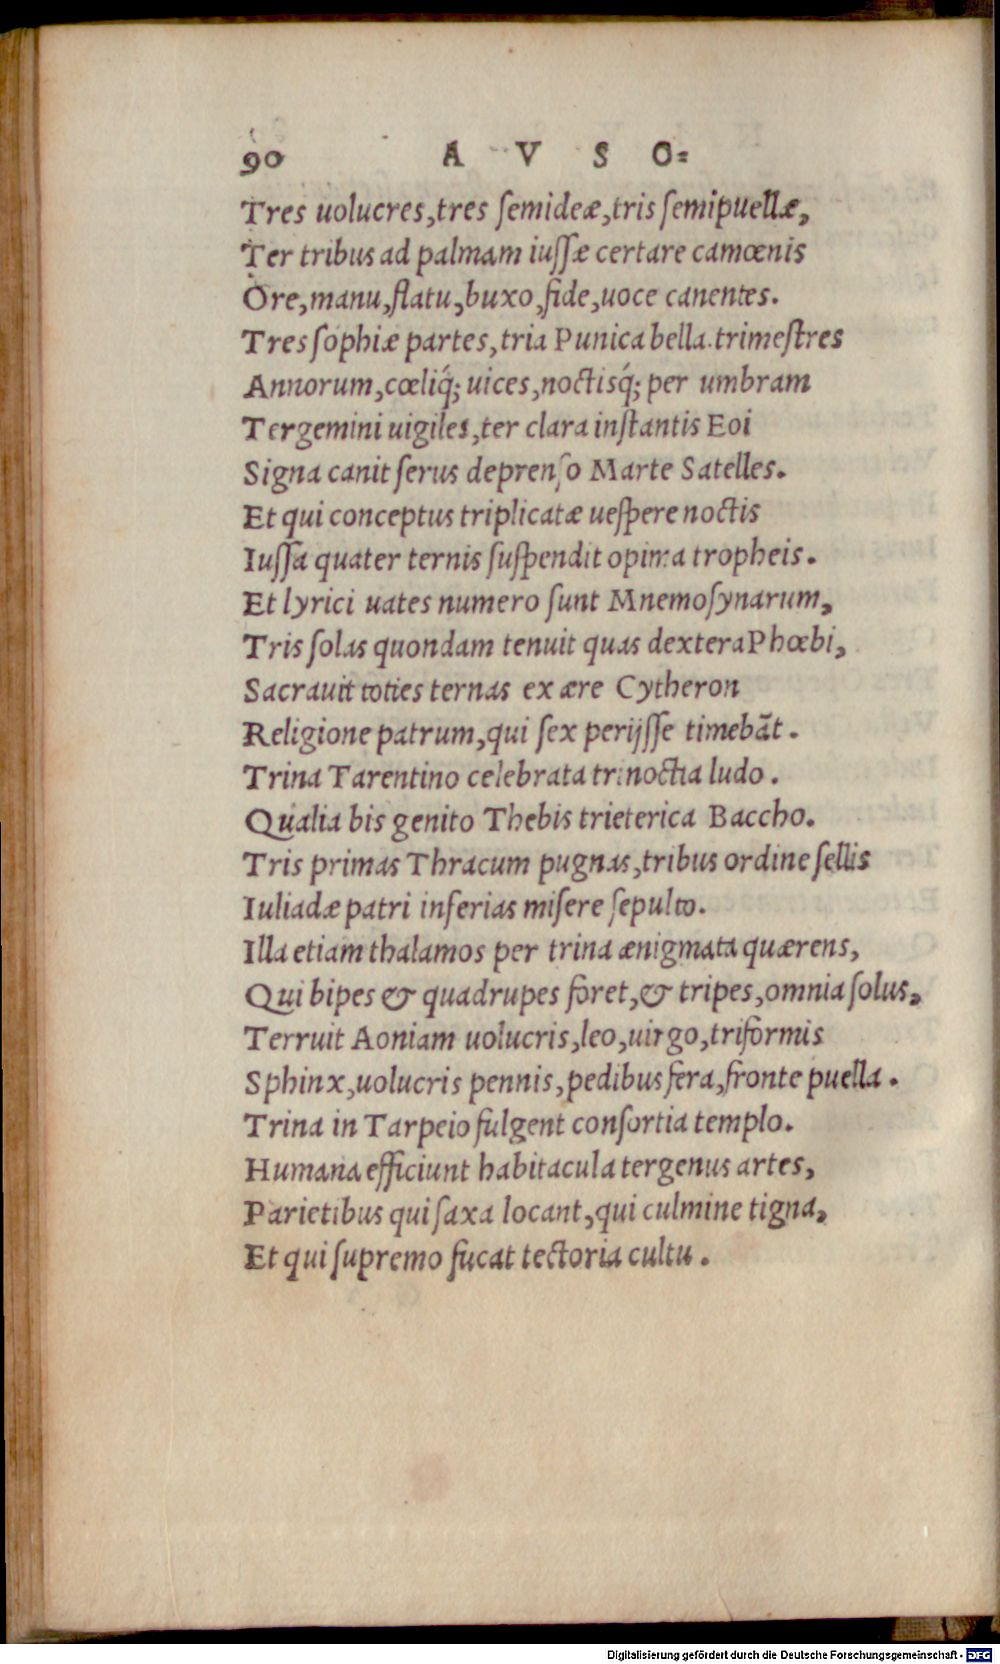 90 A V S O=
Tres uolucres,tres ſemideæ,tris ſemipuellæ,
Ter tribus ad palmam iuſſæ certare camœnis
Ore,manu,flatu,buxo,fide,uoce canentes.
Tres ſophiæ partes,tria Punica bella.trimeſtres
Annorum,cœliq́; uices,noctisq́; per umbram
Tergemini uigiles,ter clara inſtantis Eoi
Signa canit ſerus deprenſo Marte Satelles.
Et qui conceptus triplicatæ ueſpere noctis
Iuſſa quater ternis ſuſpendit opima tropheis.
Et lyrici uates numero ſunt Mnemoſynarum,
Tris ſolas quondam tenuit quas dextera Phœbi,
Sacrauit toties ternas ex ære Cytheron
Religione patrum,qui ſex perijſſe timebāt.
Trina Tarentino celebrata trinoctia ludo.
Qualia bis genito Thebis trieterica Baccho.
Tris primas Thracum pugnas,tribus ordine ſellis
Iuliadæ patri inferias miſere ſepulto.
Illa etiam thalamos per trina ænigmata quærens,
Qui bipes & quadrupes foret,& tripes,omnia ſolus,
Terruit Aoniam uolucris,leo,uirgo,triformis
Sphinx,uolucris pennis,pedibus fera,fronte puella.
Trina in Tarpeio fulgent conſortia templo.
Humana efficiunt habitacula tergenus artes,
Parietibus qui ſaxa locant,qui culmine tigna,
Et qui ſupremo fucat tectoria cultu.
Digitalisierung gefördert durch die Deutsche Forschungsgemeinschaft - DFG